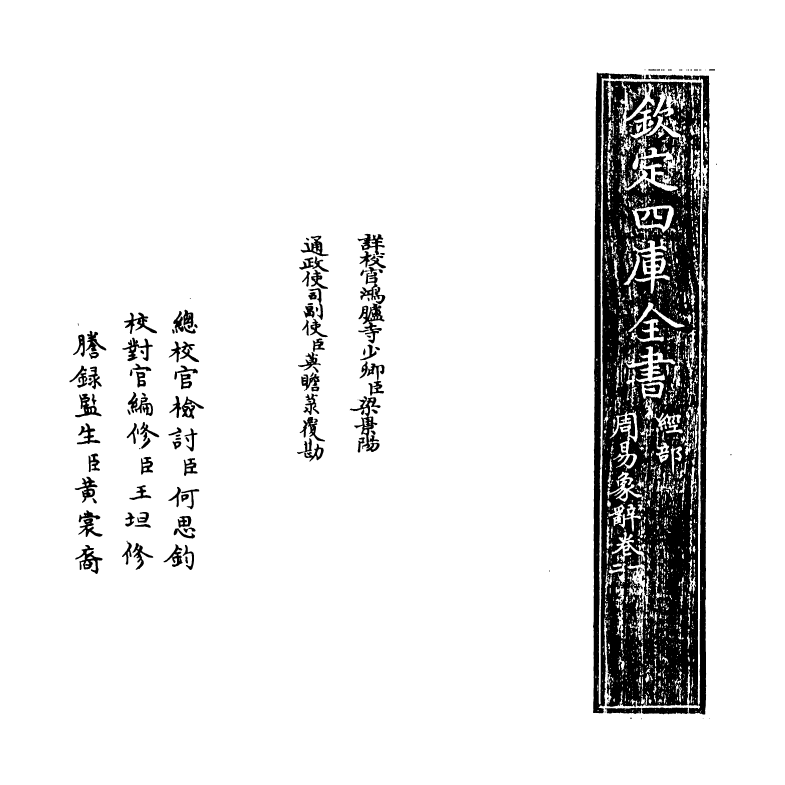 欽定四庫全書
經部
周易象辭卷十
詳校官鴻臚寺少卿臣梁景陽
通政使司副使臣莫瞻菉覆勘
總校官檢討臣何思鈞
校對官編修臣王坦修
謄録監生臣黄裳裔